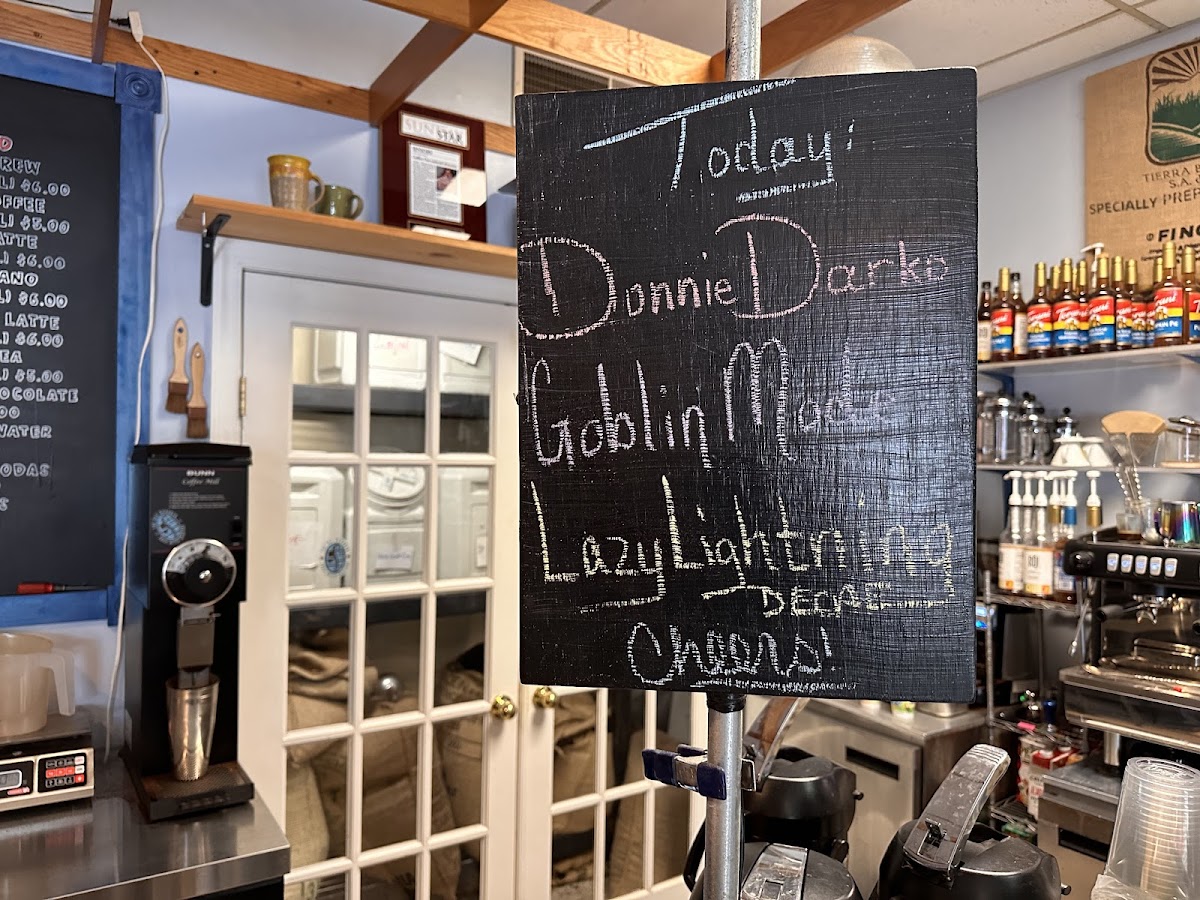 REW
$6.00
OFFEE
$5.00
ATTE
$6.00
ANO
$6.00
LATTE
$6.00
EA
$5.00
OCOLATE
00
WATER
ODAS
SUN
STAR
BUNN
Coffee Mill
Today:
Donnie Darko
Goblin Mode
Lazy Lightning
DECAF
Cheers!
TIERRA
S.A.
SPECIALLY PRE
FINC
Torani